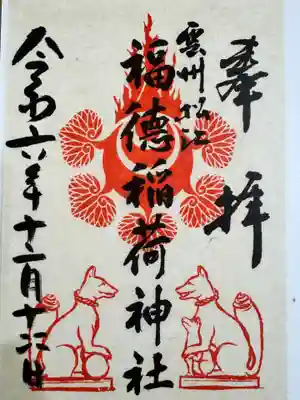 奉拝
雲州松江
福徳稲荷神社
令和六年十二月十六日